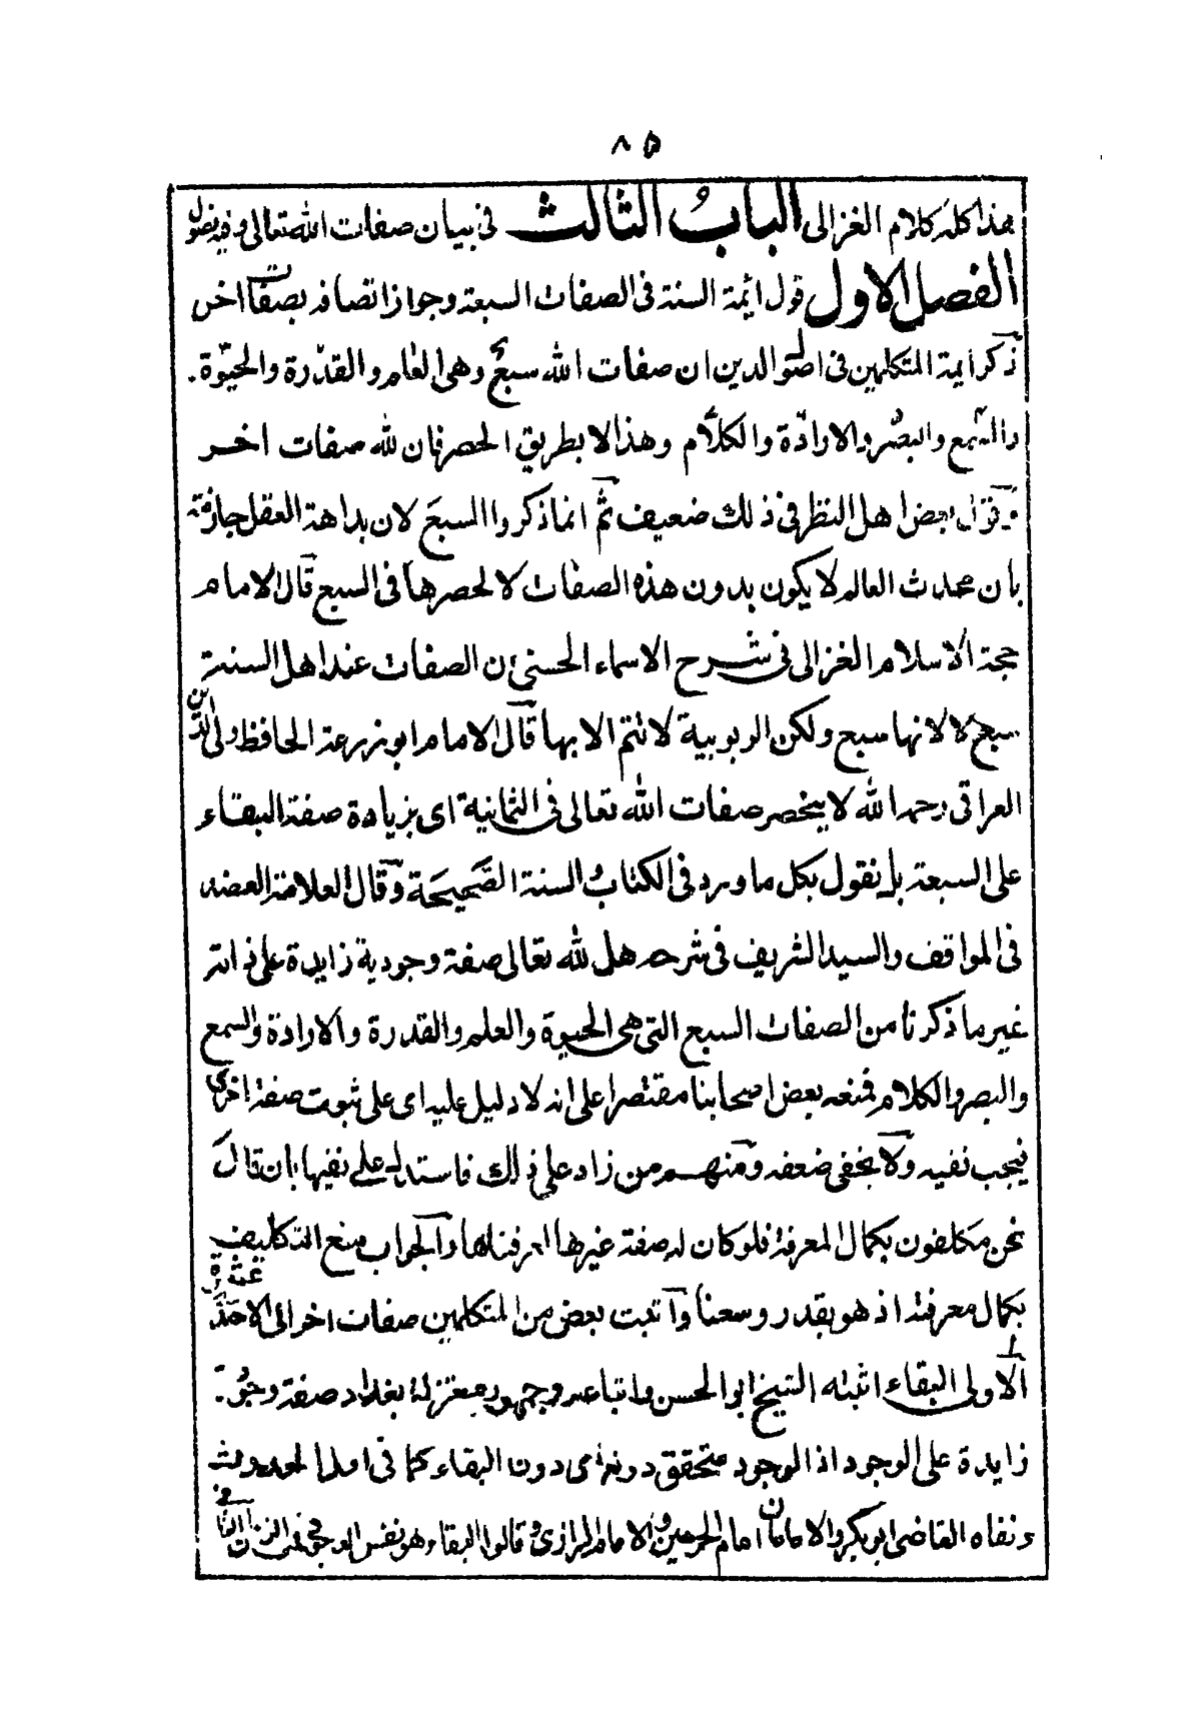 ٨٥
هذا كله كلام الغزالى الباب الثالث فى بيان صفات الله تعالى وفيه فصول
الفصل الاول قول ائمة السنة فى الصفات السبعة وجواز اتصافه بصفات اخر
ذكر ايمة المتكلمين فى اصول الدين ان صفات الله سبع وهى العلم والقدرة والحيوة
والسمع والبصر والارادة والكلام وهذا لا بطريق الحصر فان لله صفات اخر
وقول بعض اهل النظر فى ذلك ضعيف ثم انما ذكروا السبع لان بداهة العقل جازمة
بان محدث العالم لا يكون بدون هذه الصفات لا لحصرها فى السبع قال الامام
حجة الاسلام الغزالى فى شرح الاسماء الحسنى ان الصفات عند اهل السنة
سبع لا لانها سبع ولكن الربوبية لا تتم الا بها قال الامام ابو زرعة الحافظ ولى الدين
العراقى رحمه الله لا ينحصر صفات الله تعالى فى الثمانية اى بزيادة صفة البقاء
على السبعة بل نقول بكل ما ورد فى الكتاب والسنة الصحيحة وقال العلامة العضد
فى المواقف والسيد الشريف فى شرحه هل لله تعالى صفة وجودية زايدة على ذاته
غير ما ذكرنا من الصفات السبع التى هى الحيوة والعلم والقدرة والارادة والسمع
والبصر والكلام فمنعه بعض اصحابنا مقتصرا على انه لا دليل عليه اى على ثبوت صفة اخرى
فيجب نفيه ولا يخفى ضعفه ومنهم من زاد على ذلك فاستدل على نفيها بان قال
نحن مكلفون بكمال المعرفة فلو كان له صفة غيرها لعرفناها والجواب منع التكليف
بكمال معرفته اذ هو بقدر وسعنا واثبت بعض من المتكلمين صفات اخر الى الاحد عشرة
الاولى البقاء اثبته الشيخ ابو الحسن واتباعه وجمهور معتزلة بغداد صفة وجودية
زايدة على الوجود اذ الوجود متحقق دونه اى دون البقاء كما فى اول الحدوث
ونفاه القاضى ابو بكر والامامان امام الحرمين والامام الرازى وقالوا البقاء هو نفس الوجود فى الزمان الثانى